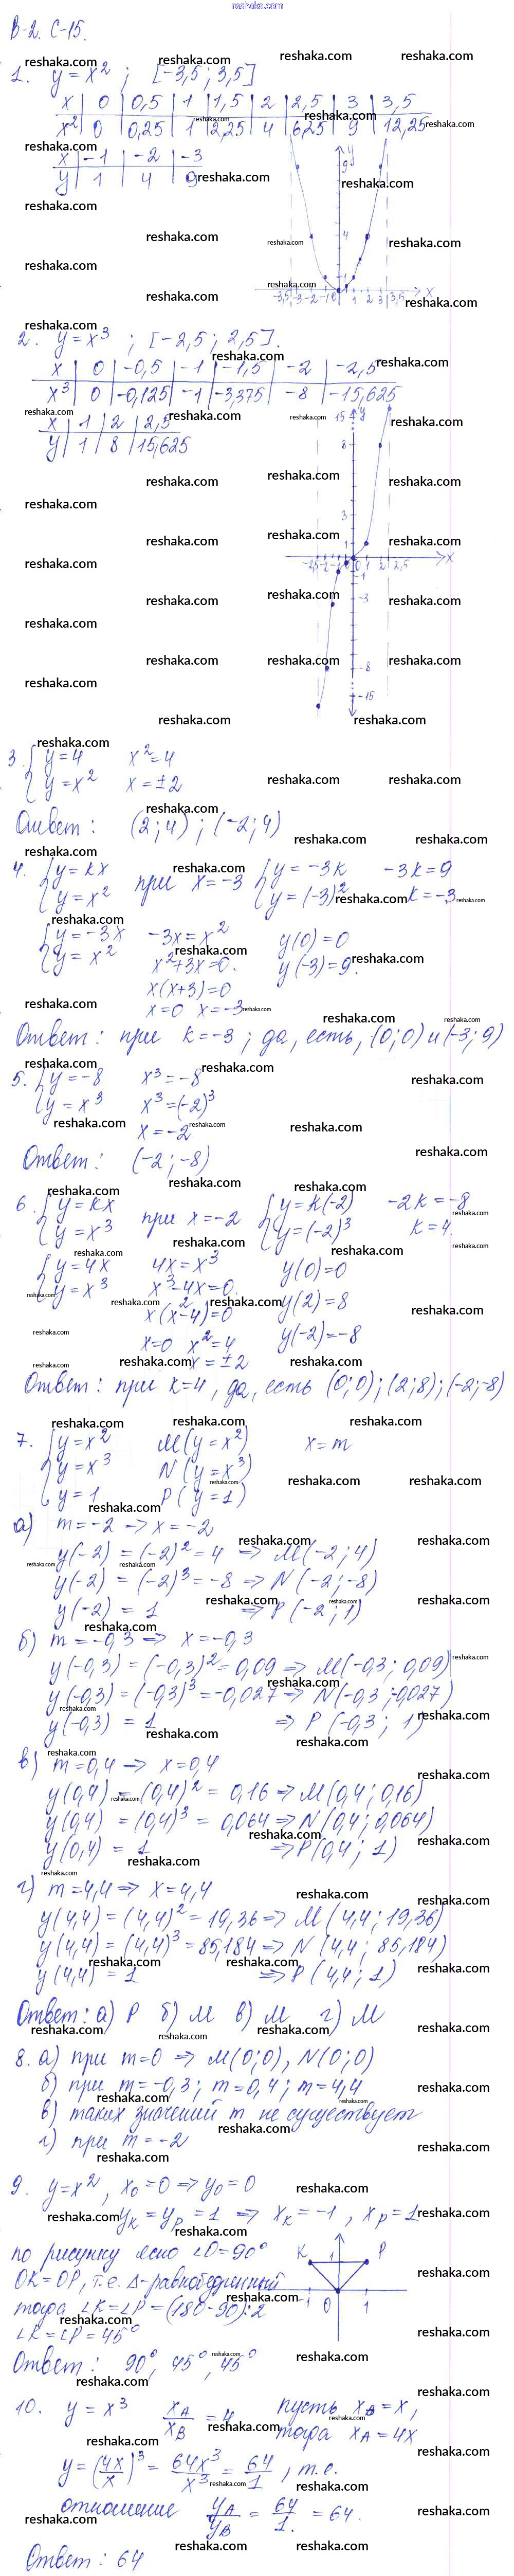 reshaka.com
В-2. С-15.
1. y = x² ; [-3,5 ; 3,5]
x | 0 | 0,5 | 1 | 1,5 | 2 | 2,5 | 3 | 3,5
x² | 0 | 0,25 | 1 | 2,25 | 4 | 6,25 | 9 | 12,25
x | -1 | -2 | -3
y | 1 | 4 | 9
2. y = x³ ; [-2,5 ; 2,5].
x | 0 | -0,5 | -1 | -1,5 | -2 | -2,5
x³ | 0 | -0,125 | -1 | -3,375 | -8 | -15,625
x | 1 | 2 | 2,5
y | 1 | 8 | 15,625
3. { y = 4 x² = 4
y = x² x = ±2
Ответ: (2; 4) ; (-2; 4)
4. { y = kx при x = -3 { y = -3k -3k = 9
y = x² y = (-3)² k = -3
{ y = -3x -3x = x² y(0) = 0
y = x² x² + 3x = 0. y(-3) = 9.
x(x+3) = 0
x = 0 x = -3
Ответ: при k = -3 ; да, есть, (0; 0) и (-3; 9)
5. { y = -8 x³ = -8
y = x³ x³ = (-2)³
x = -2
Ответ: (-2; -8)
6. { y = kx при x = -2 { y = k(-2) -2k = -8
y = x³ y = (-2)³ k = 4.
{ y = 4x 4x = x³ y(0) = 0
y = x³ x³ - 4x = 0. y(2) = 8
x(x² - 4) = 0 y(-2) = -8
x = 0 x² = 4
x = ±2
Ответ: при k = 4, да, есть (0; 0) ; (2; 8) ; (-2; -8)
7. { y = x² M (y = x²) x = m
y = x³ N (y = x³)
y = 1 P (y = 1)
а) m = -2 => x = -2
y(-2) = (-2)² = 4 => M(-2; 4)
y(-2) = (-2)³ = -8 => N(-2; -8)
y(-2) = 1 => P(-2; 1)
б) m = -0,3 => x = -0,3
y(-0,3) = (-0,3)² = 0,09 => M(-0,3; 0,09)
y(-0,3) = (-0,3)³ = -0,027 => N(-0,3; -0,027)
y(-0,3) = 1 => P(-0,3; 1)
в) m = 0,4 => x = 0,4
y(0,4) = (0,4)² = 0,16 => M(0,4; 0,16)
y(0,4) = (0,4)³ = 0,064 => N(0,4; 0,064)
y(0,4) = 1 => P(0,4; 1)
г) m = 4,4 => x = 4,4
y(4,4) = (4,4)² = 19,36 => M(4,4; 19,36)
y(4,4) = (4,4)³ = 85,184 => N(4,4; 85,184)
y(4,4) = 1 => P(4,4; 1)
Ответ: а) P б) M в) M г) M
8. а) при m = 0 => M(0; 0), N(0; 0)
б) при m = -0,3; m = 0,4; m = 4,4
в) таких значений m не существует
г) при m = -2
9. y = x², x₀ = 0 => y₀ = 0
yK = yP = 1 => xK = -1, xP = 1
по рисунку ясно ∠O = 90°
OK = OP, т.е. Δ-равнобедренный
тогда ∠K = ∠P = (180-90):2
∠K = ∠P = 45°
Ответ: 90°, 45°, 45°
10. y = x³ xA/xB = 4 пусть xB = x,
тогда xA = 4x
y = (4x/x)³ = 64x³/x³ = 64/1, т.е.
отношение yA/yB = 64/1. = 64.
Ответ: 64